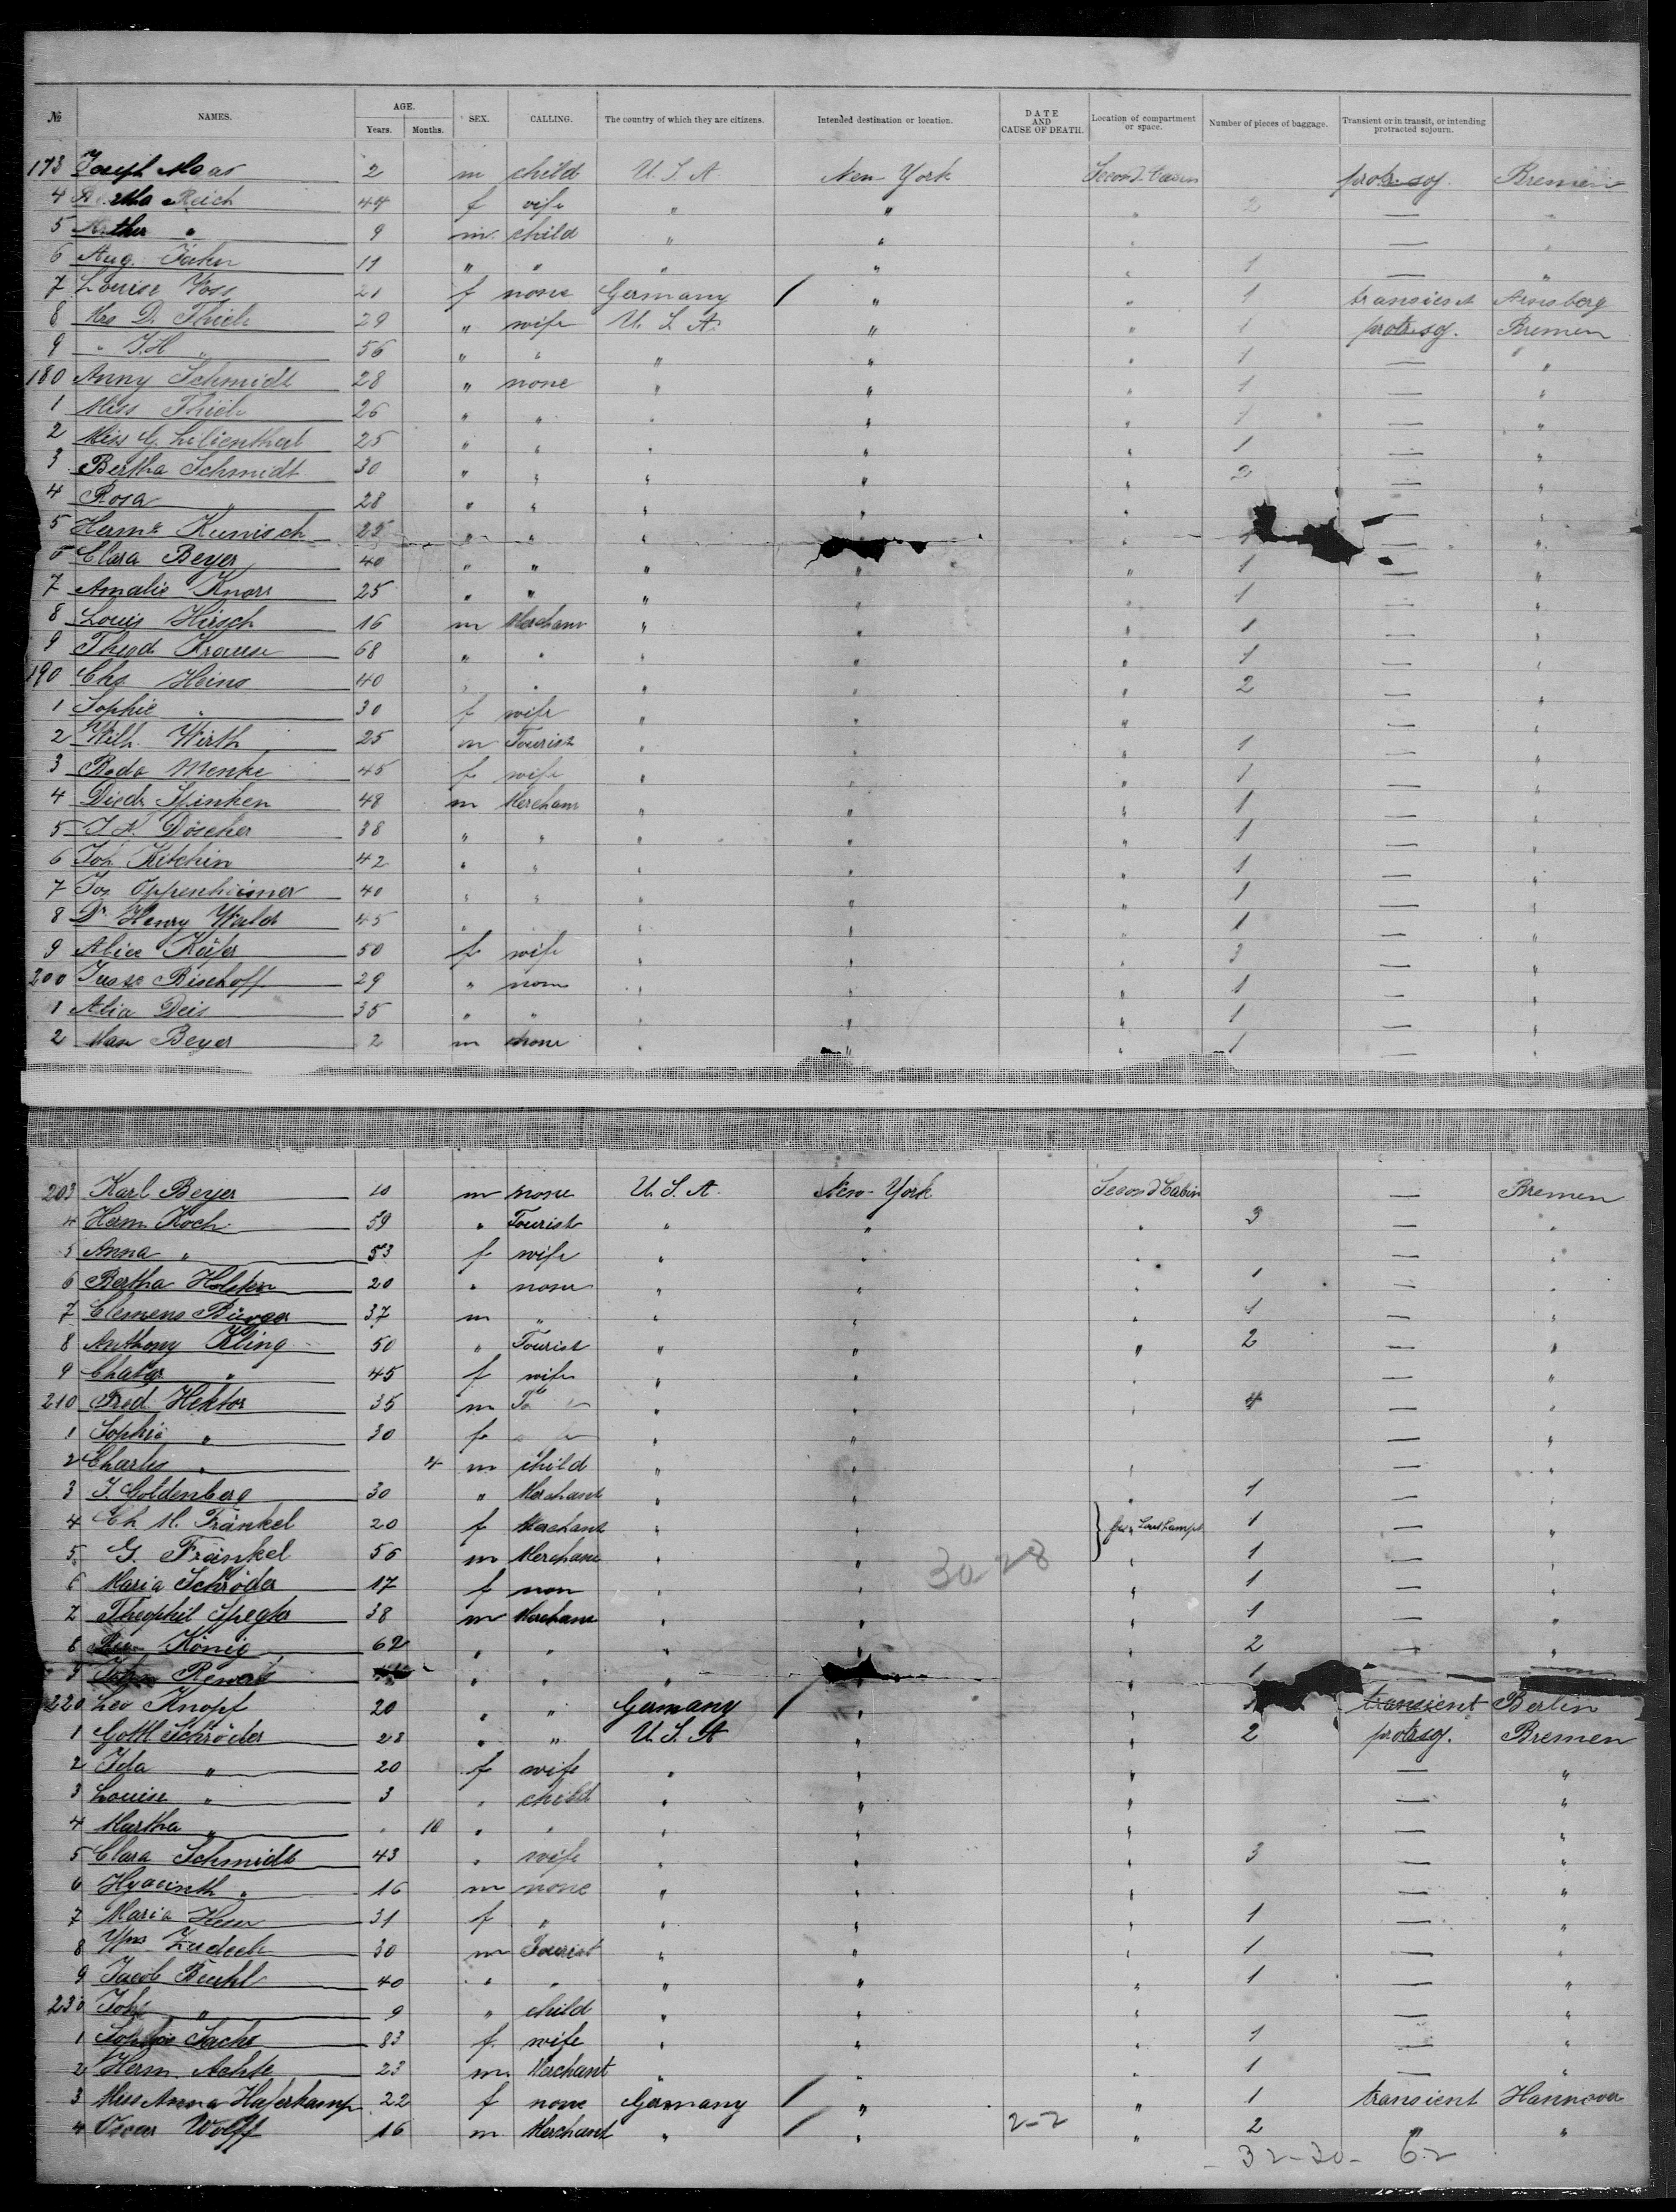 № NAMES. AGE. Years. Months. SEX. CALLING. The country of which they are citizens. Intended destination or location. DATE AND CAUSE OF DEATH. Location of compartment or space. Number of pieces of baggage. Transient or in transit, or intending protracted sojourn.
173 Joseph Maas 2 m child U.S.A. New York Second Cabin protr. soj. Bremen
4 Bertha Reich 44 f wife " " " 2 — "
5 " 9 m child " " " — "
6 Aug. Jahn 11 " " " " " 1 — "
7 Louise Voss 21 f none Germany / " " 1 transient Arnsberg
8 Mrs D. Thiele 29 " wife U.S.A. " " 1 protr. soj. Bremen
9 " J.H. " 56 " " " " " 1 — "
180 Anny Schmidt 28 " none " " " 1 — "
1 Miss Thiele 26 " " " " " 1 — "
2 Miss G. Lilienthal 25 " " " " " 1 — "
3 Bertha Schmidt 30 " " " " " 2 — "
4 Rosa " 28 " " " " " — "
5 Herme Kunisch 25 " " " " — "
6 Clara Beyer 40 " " " " " 1 — "
7 Amalie Knorr 25 " " " " " 1 — "
8 Louis Hirsch 16 m Merchant " " " 1 — "
9 Theod Krause 68 " " " " " 1 — "
190 Chs Heins 40 " " " " " 2 — "
1 Sophie " 30 f wife " " " — "
2 Wilh. Wirth 25 m Tourist " " " 1 — "
3 Menke 45 f wife " " " 1 — "
4 Diedr Spinken 48 m Merchant " " " 1 — "
5 Döscher 38 " " " " " 1 — "
6 Joh Kitchin 42 " " " " " 1 — "
7 Jos Oppenheimer 40 " " " " " 1 — "
8 Dr Henry Wald 45 " " " " " 1 — "
9 Alice Käfer 50 f wife " " " 3 — "
200 Bischoff 29 " none " " " 1 — "
1 Deis 35 " " " " " 1 — "
2 Max Beyer 2 m none " " " 1 — "
203 Karl Beyer 10 m none U.S.A. New-York Second Cabin — Bremen
4 Herm Koch 59 " Tourist " " " 3 — "
5 Anna " 53 f wife " " " — "
6 Bertha Holsten 20 " none " " " 1 — "
7 Clemens Bürger 37 m " " " " 1 — "
8 Anthony Kling 50 " Tourist " " " 2 — "
9 " 45 f wife " " " — "
210 Fred Hektor 35 m " " " 4 — "
1 Sophie " 30 f " " " — "
2 Charles " 4 m child " " " — "
3 J. Goldenberg 30 " Merchant " " " 1 — "
4 Ch. M. Fränkel 20 f Merchant " " 1 — "
5 G. Fränkel 56 m Merchant " " 30-28 " 1 — "
6 Maria Schröder 17 f none " " " 1 — "
7 Theophil 38 m Merchant " " " 1 — "
8 König 62 " " " " " 2 — "
9 John " " " " 1
220 Leo Knopf 20 " " Germany / " " transient Berlin
1 Gottl Schröder 28 " " U.S.A " " 2 protr. soj. Bremen
2 Ida " 20 f wife " " " — "
3 Louise " 3 " child " " " — "
4 Martha " " 10 " " " " " — "
5 Clara Schmidt 43 " wife " " " 3 — "
6 Hyacinth " 16 m none " " " — "
7 Maria 31 f " " " " 1 — "
8 30 m Tourist " " " 1 — "
9 Jacob 40 " " " " " 1 — "
230 " 9 " child " " " — "
1 Sophie Sachs 83 f wife " " " 1 — "
2 Herm. Achte 23 m Merchant " " " 1 — "
3 Miss Anna Haferkamp 22 f none Germany / " " 1 transient Hannover
4 Oscar Wolff 16 m Merchant " / " 2-2 " 2 " "
- 32-30- 62